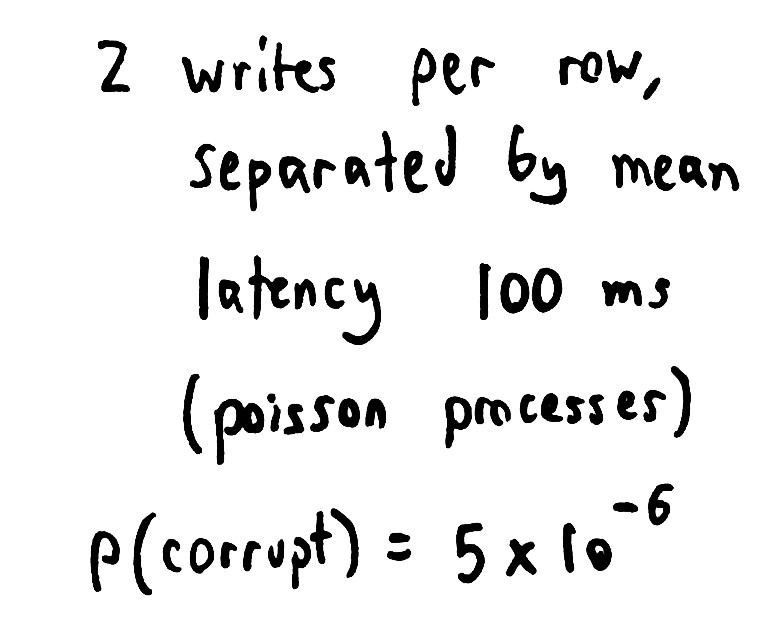 2 writes per row,
separated by mean
latency 100 ms
(poisson processes)
p(corrupt) = 5 x 10^-6